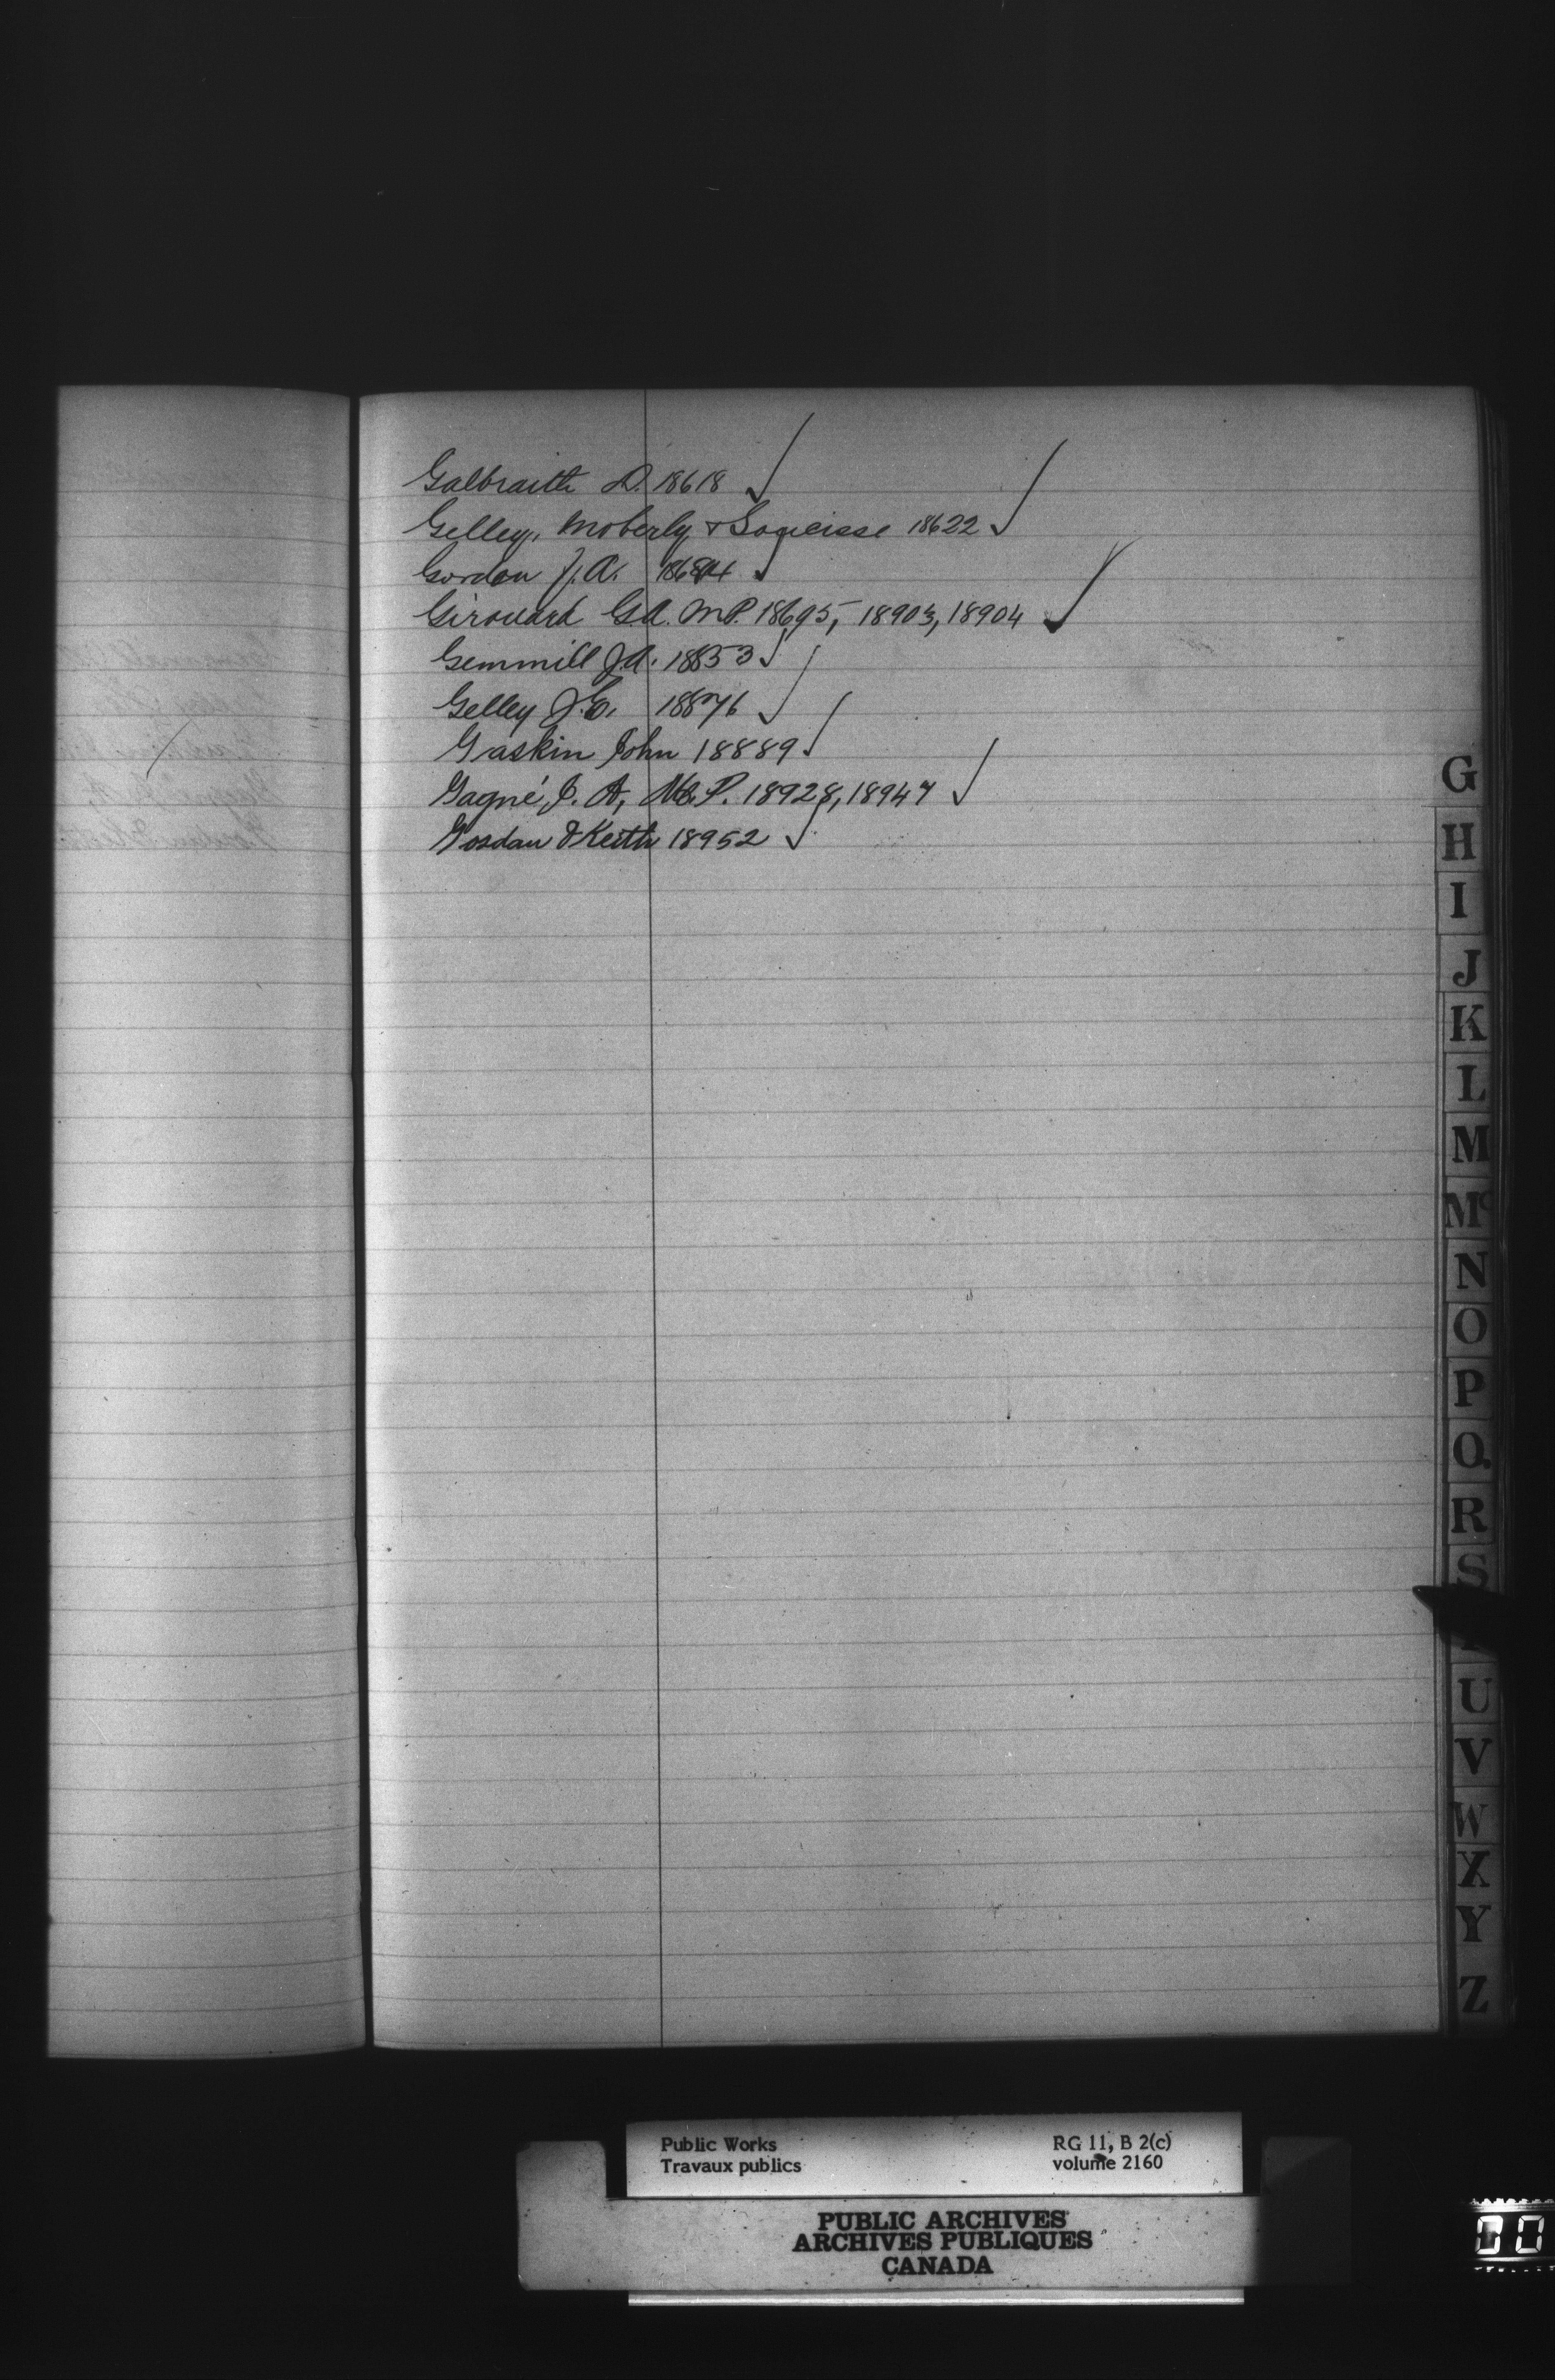 Galbraith D. 18618
Gelley, Moberly & 18622
Gordon J. A.
Girouard G.A. M.P. 18695, 18903, 18904
Gemmill J.A. 18853
Gelley J.E. 18876
Gaskin John 18889
Gagné, J. A, M.P. 18928, 18947
Gordan & Keith 18952
G
H
I
J
K
L
M
Mc
N
O
P
Q
R
S
U
V
W
X
Y
Z
Public Works RG 11, B 2(c)
Travaux publics volume 2160
PUBLIC ARCHIVES
ARCHIVES PUBLIQUES
CANADA
00